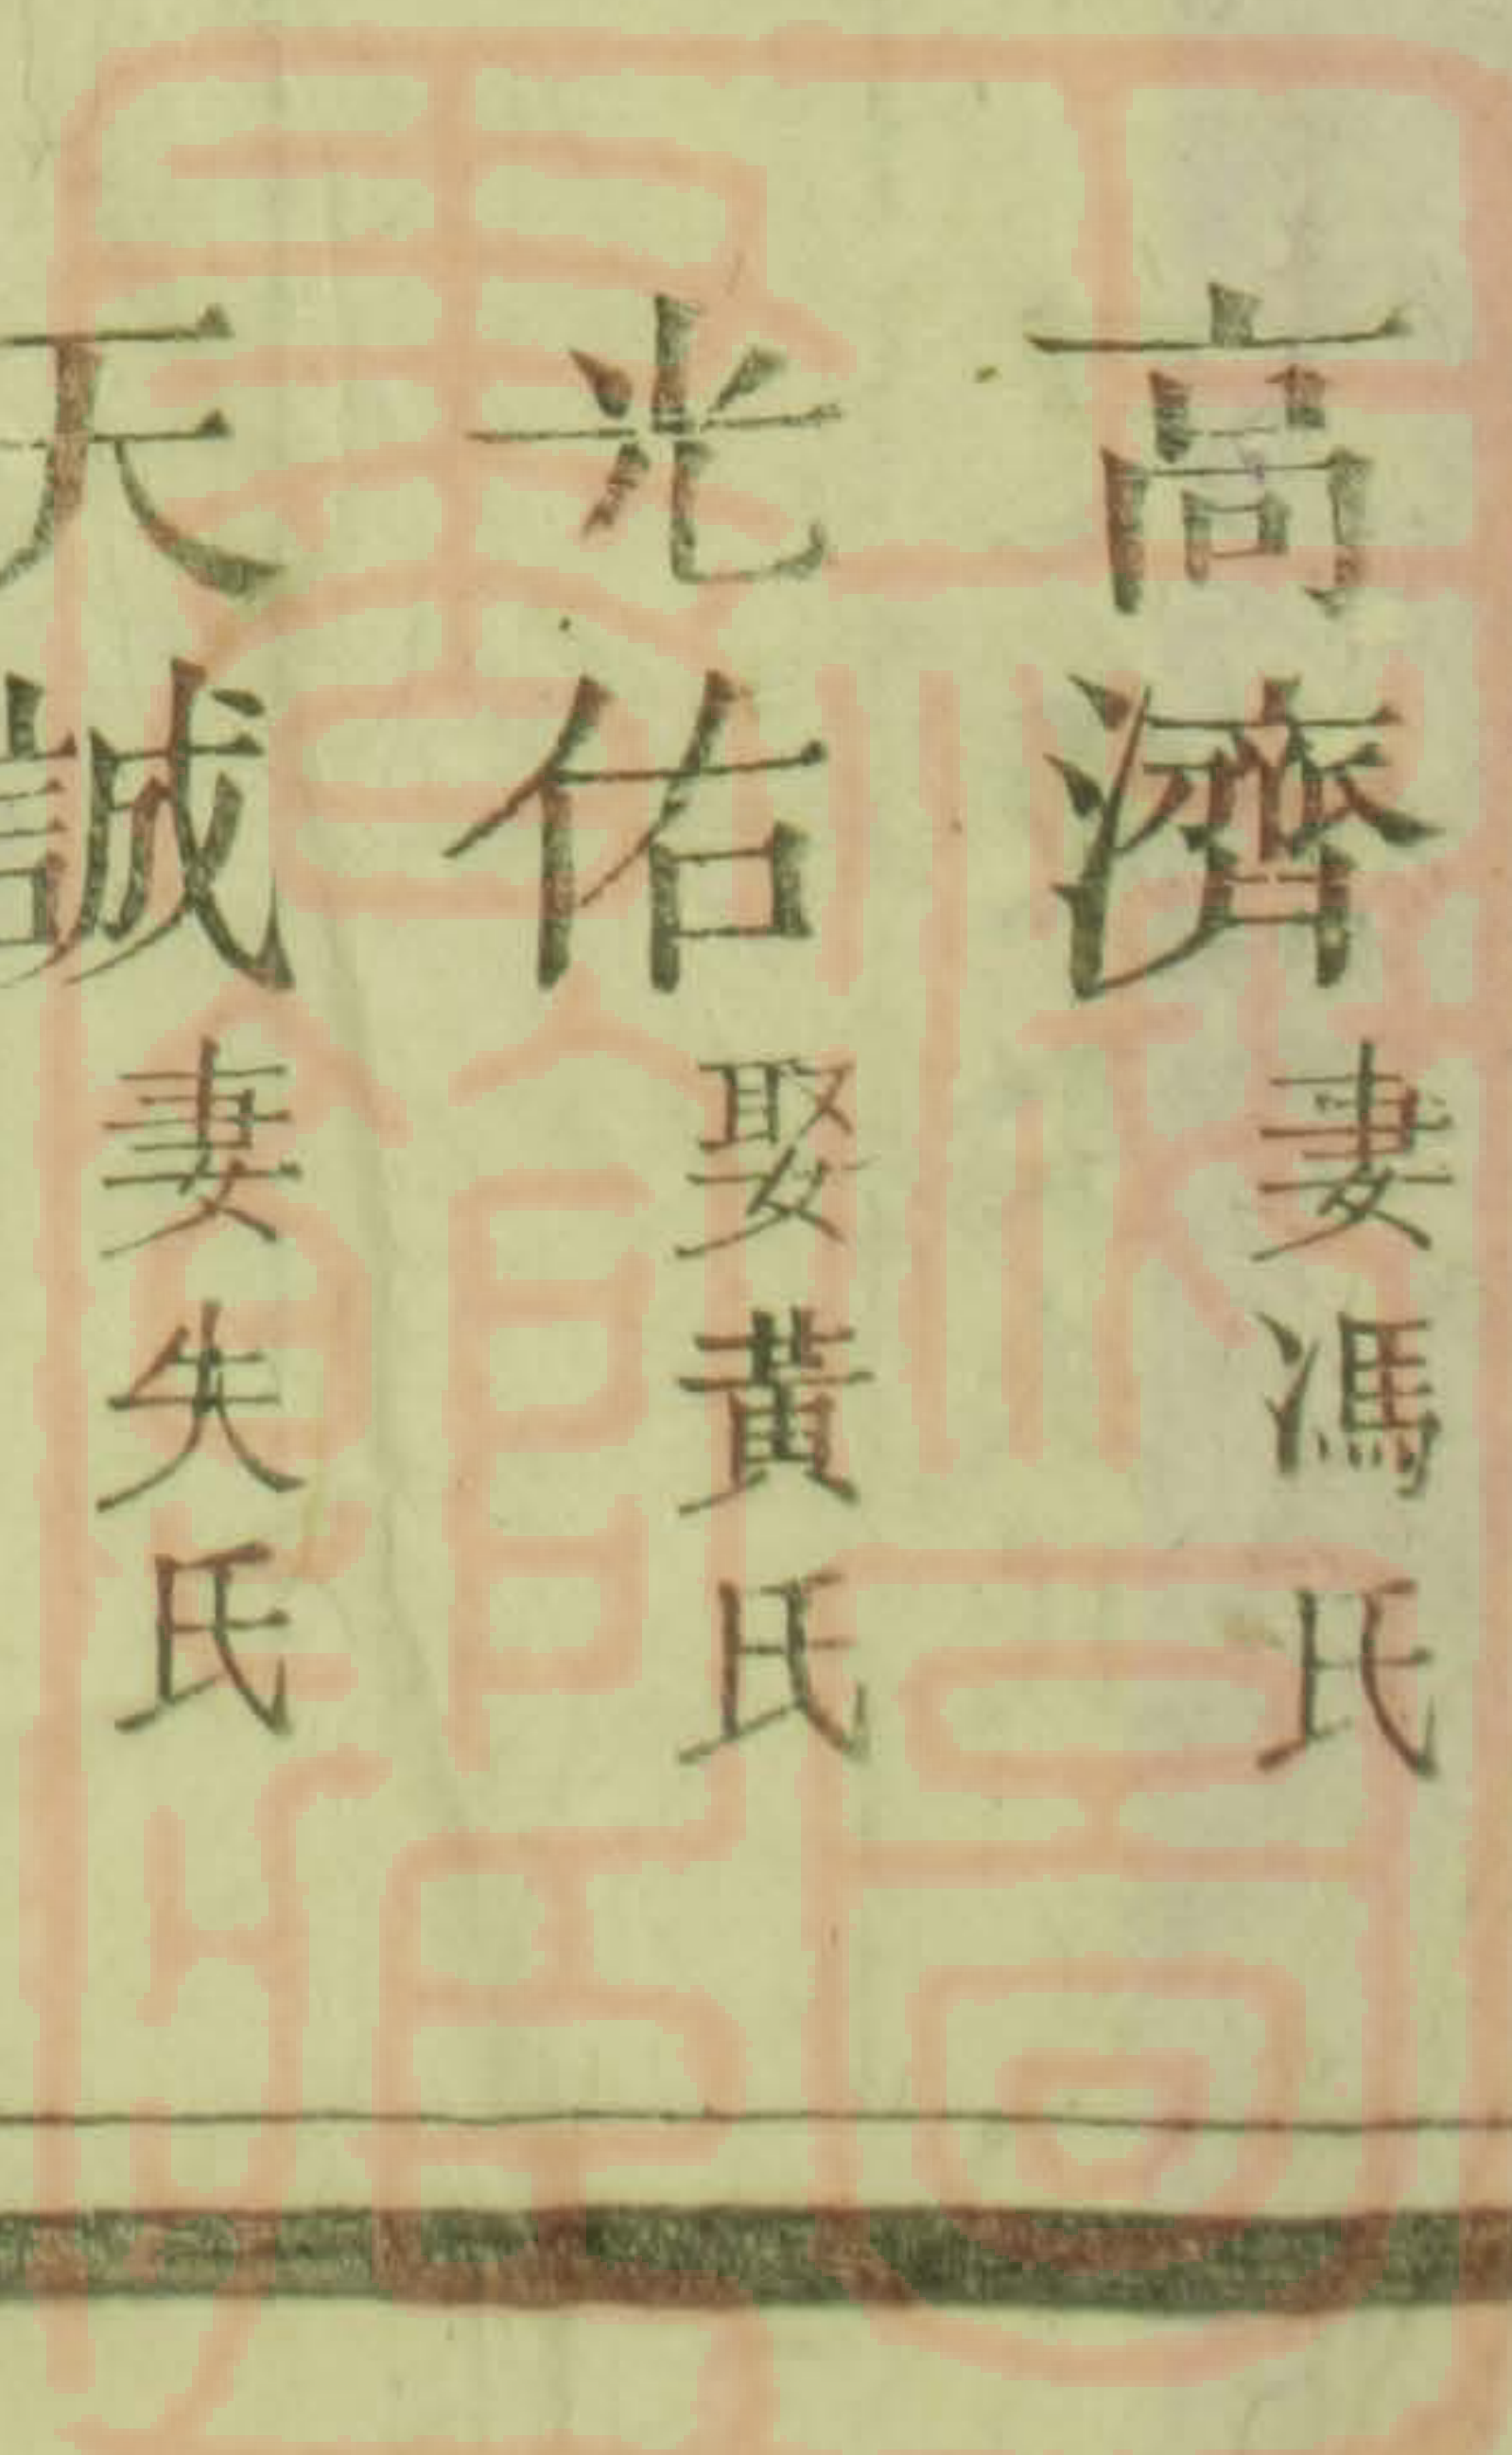 高濟妻馮氏
光佑娶黃氏
天誠妻失氏